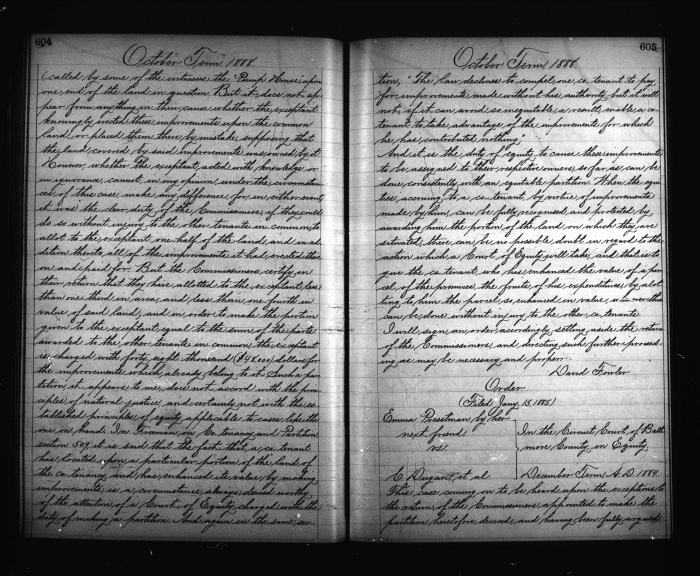 604
October Term 1888.
(called by some of the witnesses the "Pump House" upon
one end of the land in question But it does not ap
pear from anything in this cause whether the exceptant
knowingly erected these improvements upon the common
land, or placed them there by mistake, supposing that
the land covered by said improvements was owned by it
However whether the exceptant acted with knowledge or
in ignorance cannot, in my opinion, under the circumstan
ces of this case, make any difference, for in either event
it was the clear duty of the Commissioners, if they could
do so without injury to the other tenants in common, to
allot to the exceptant one half of the land, and in ad
dition thereto, all of the improvements it had erected there
on and paid for. But the Commissioners certify in
their return that they have allotted to the exceptant, less
than one third in area, and less than one fourth in
value of said land, and in order to make the portion
given to the exceptant, equal to the sum of the parts
awarded to the other tenants in common, the exceptant
is charged with forty eight thousand ($48000) dollars for
the improvements which already belong to it. Such a par
tition, it appears to me, does not accord with the prin
ciples of natural justice, and certainly not with the es
tablished principles of equity applicable to cases like the
one in hand. In Freeman on Co-tenancy and Partition
section 509 it is said that the fact that a co-tenant
has located upon a particular portion of the land of
the co-tenancy and has enhanced its value by making
improvements, is a circumstance always deemed worthy
of the attention of a Court of Equity charged with the
duty of making a partition. And again in the same sec
605
October Term 1888
tion, "The law declines to compel one co-tenant to pay
for improvements made without his authority, but it will
not, if it can avoid so inequitable a result, enable a co
tenant to take advantage of the improvements for which
he has contributed nothing.
And it is the duty of equity to cause these improvements
to be assigned to their respective owners, so far as can be
done consistently with an equitable partition. When the equi
ties accruing to a co-tenant, by virtue of improvements
made by him, can be fully recognised and protected by
awarding him the portion of the land on which they are
situated, there can be no possible doubt in regard to the
action which a Court of Equity will take, and that is to
give the co-tenant who has enhanced the value of a par
cel of the premises the fruits of his expenditures by allot
ting to him the parcel so enhanced in value, so far as this
can be done without injury to the other co-tenants
I will sign an order accordingly, setting aside the return
of the Commissioners, and directing such further proceed
ings as may be necessary and proper.
David Fowler
Order
(Filed Jany. 15, 1885)
Emma Presstman by her
next friend
vs
C. Dugant, et al
In the Circuit Court of Balti
more County, in Equity
December Term, A.D. 1884.
This case coming on to be heard upon the exceptions to
the return of the Commissioners appointed to make the
partition heretofore decreed, and having been fully argued